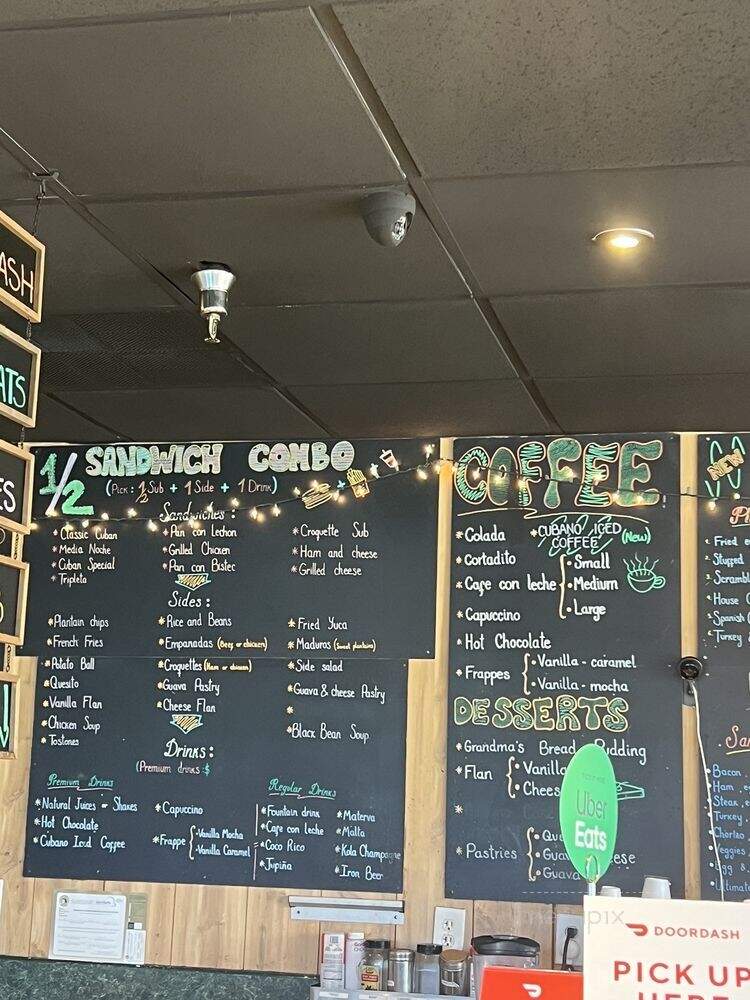 ASH
ATS
ES
1/2 SANDWICH COMBO
(PICK: 1/2 Sub + 1 Side + 1 Drink)
Sandwiches:
* Classic Cuban
* Media Noche
* Cuban Special
* Tripleta
* Pan con Lechon
* Grilled Chicken
* Pan con Bistec
* Croquette Sub
* Ham and cheese
* Grilled cheese
Sides:
* Plantain chips
* French Fries
* Potato Ball
* Quesito
* Vanilla Flan
* Chicken Soup
* Tostones
* Rice and Beans
* Empanadas (Beef or chicken)
* Croquettes (Ham or chicken)
* Guava Pastry
* Cheese Flan
* Fried Yuca
* Maduros (Sweet plantains)
* Side salad
* Guava & cheese Pastry
*
* Black Bean Soup
Drinks:
(Premium drinks $
Premium Drinks
* Natural Juices or Shakes
* Hot Chocolate
* Cubano Iced Coffee
* Capuccino
* Frappe
- Vanilla Mocha
- Vanilla Caramel
Regular Drinks
* Fountain drink
* Cafe con leche
* Coco Rico
* Jupiña
* Materva
* Malta
* Kola Champagne
* Iron Beer
COFFEE
* Colada
* Cortadito
* Cafe con leche
* Capuccino
* Hot Chocolate
* Frappes
- Vanilla - caramel
- Vanilla - mocha
* CUBANO ICED COFFEE (New)
- Small
- Medium
- Large
DESSERTS
* Grandma's Bread Pudding
* Flan
- Vanilla
- Chees
*
* Pastries
- Qu
- Gua ese
- Guava
NEW
* Fried e
* Stuffed
* Scrambl
* House
* Spanish
* Turkey
* Sa
* Bacon
* Ham, e
* Steak, e
* Turkey
* Chorizo
* Veggies
* Egg &
* Ultimate
Uber
Eats
DOORDASH
PICK UP
HERE